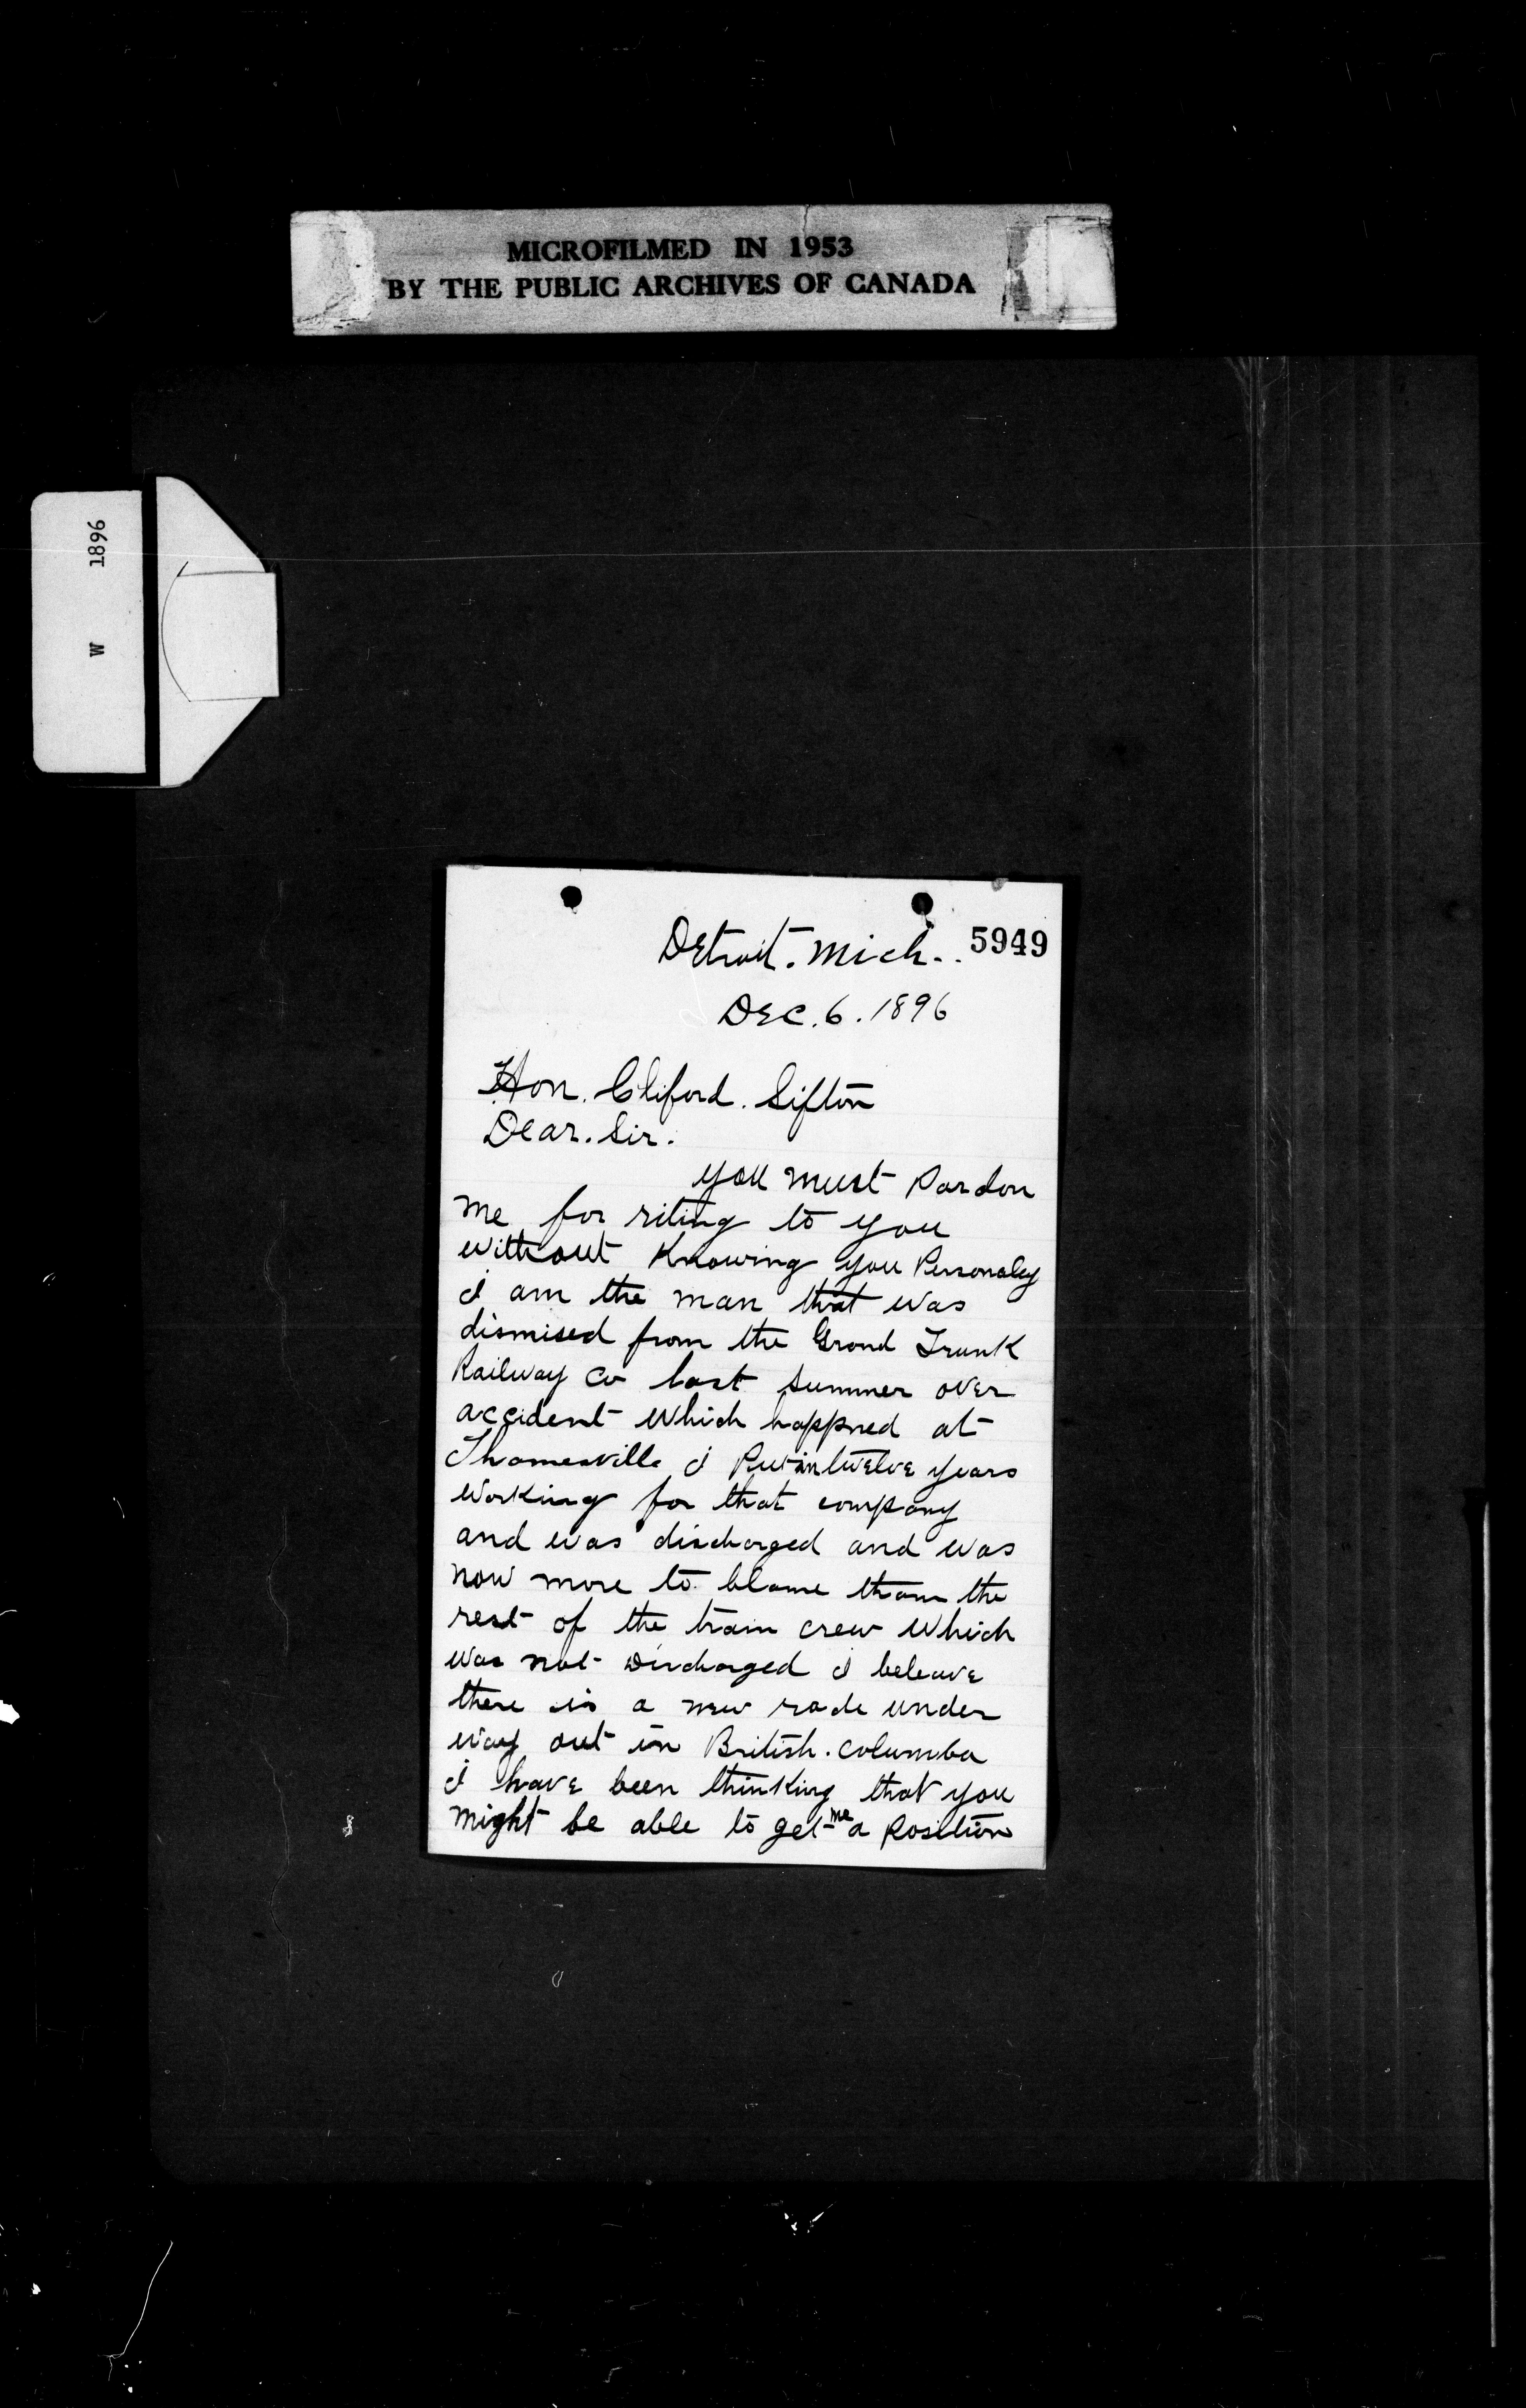 MICROFILMED IN 1953
BY THE PUBLIC ARCHIVES OF CANADA
W 1896
5949
Detroit. Mich..
DEC. 6. 1896
Hon. Cliford. Sifton
Dear. Sir.
you must Pardon
me for riting to you
without Knowing you Personaley
I am the man that was
dismised from the Grand Trunk
Railway Co last summer over
accident which happned at
Thamesville I Put in twelve years
working for that company
and was discharged and was
now more to blame than the
rest of the train crew which
was not Discharged I beleave
there is a new rode under
way out in British. columba
I have been thinking that you
might be able to get me a Position